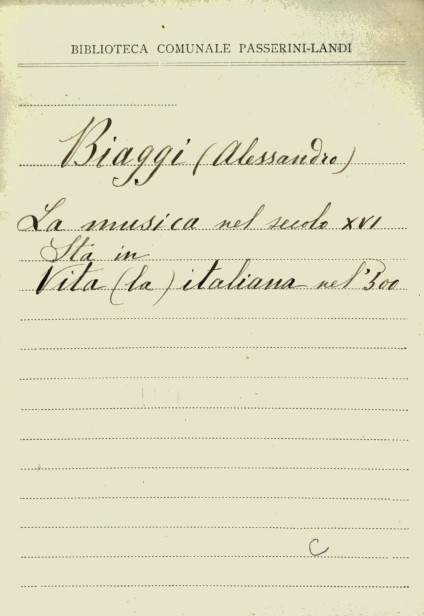 BIBLIOTECA COMUNALE PASSERINI-LANDI
Biaggi (Alessandro)
La musica nel secolo XVI
Sta in
Vita (la) italiana nel '500
C